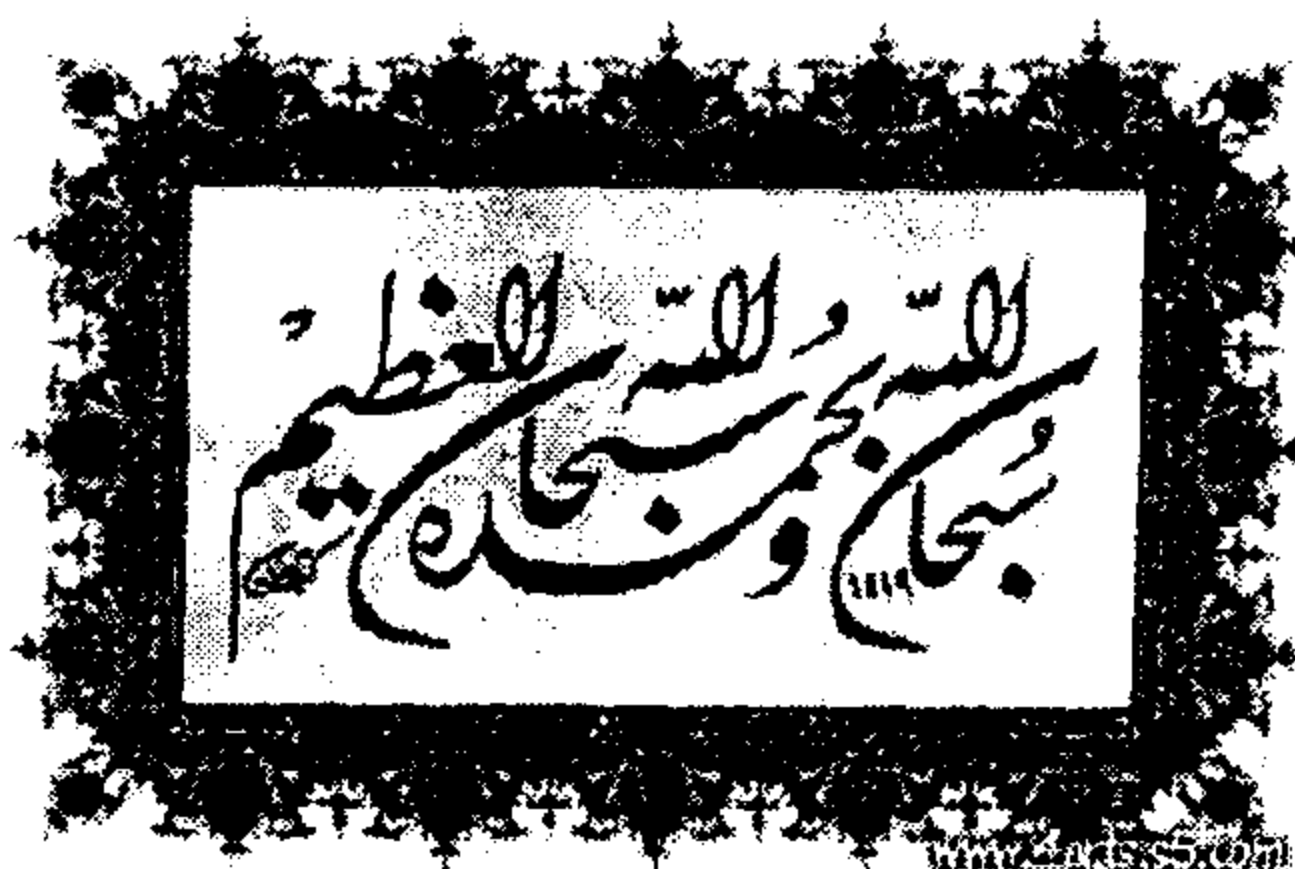 سُبحان اللّه وبحمده سبحان اللّه العظيم